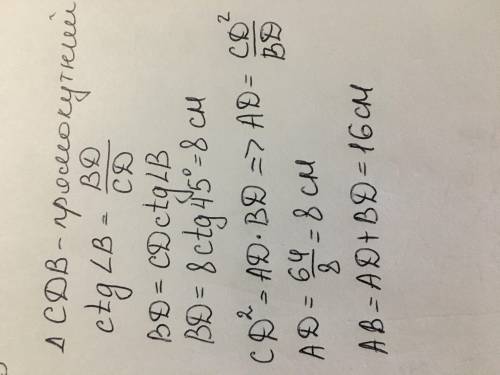 Δ CDB - прямокутний
ctg∠B = BD/CD
BD = CD ctg∠B
BD = 8 ctg 45° = 8 см
CD² = AD · BD => AD = CD²/BD
AD = 64/8 = 8 см
AB = AD + BD = 16 см